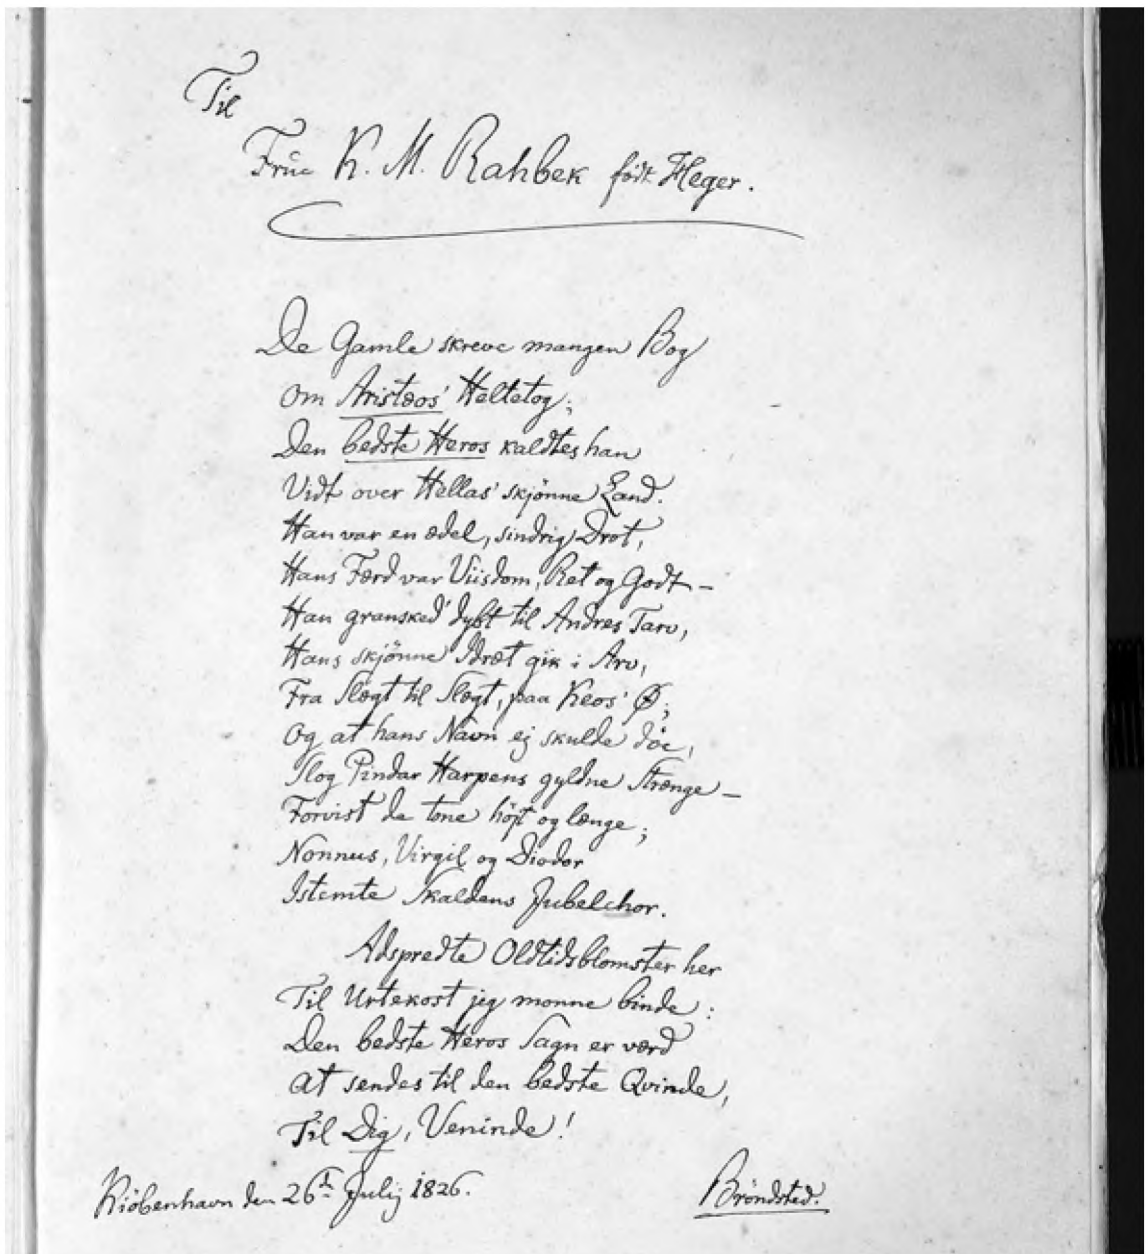 Til
Frue K. M. Rahbek født Heger.
De Gamle skreve mangen Bog
om Aristæos' Heltetog;
Den bedste Heros kaldtes han
Vidt over Hellas' skjönne Land.
Han var en ædel, sindrig Drot,
Hans Færd var Viisdom, Ret og Godt —
Han gransked' dybt til Andres Tarv,
Hans skjönne Idræt gik i Arv,
Fra Slægt til Slægt, paa Keos' Ø;
Og at hans Navn ej skulde döe,
Slog Pindar Harpens gyldne Strænge —
Forvist de tone höjt og længe;
Nonnus, Virgil og Diodor
Istemte Skaldens Jubelchor.
Adspredte Oldtidsblomster her
Til Urtekost jeg monne binde:
Den bedste Heros Sagn er værd
At sendes til den bedste Qvinde,
Til Dig, Veninde!
Kiöbenhavn den 26de Julij 1826.
Bröndsted.